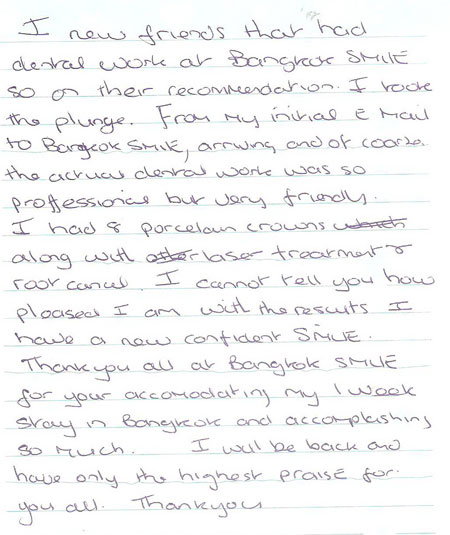 I new friends that had
dental work at Bangkok SMILE
so on their recommendation. I took
the plunge. From my initial E Mail
to Bangkok SMILE, arriving and of coarse.
the actual dental work was so
proffessional but very friendly.
I had 8 porcelain crowns which
along with after laser treatment &
root canal. I cannot tell you how
pleased I am with the results I
have a new confident SMILE.
Thankyou all at Bangkok SMILE
for your accomodating my 1 week
stay in Bangkok and accomplishing
so much. I will be back and
have only the highest praise for.
you all. Thankyou